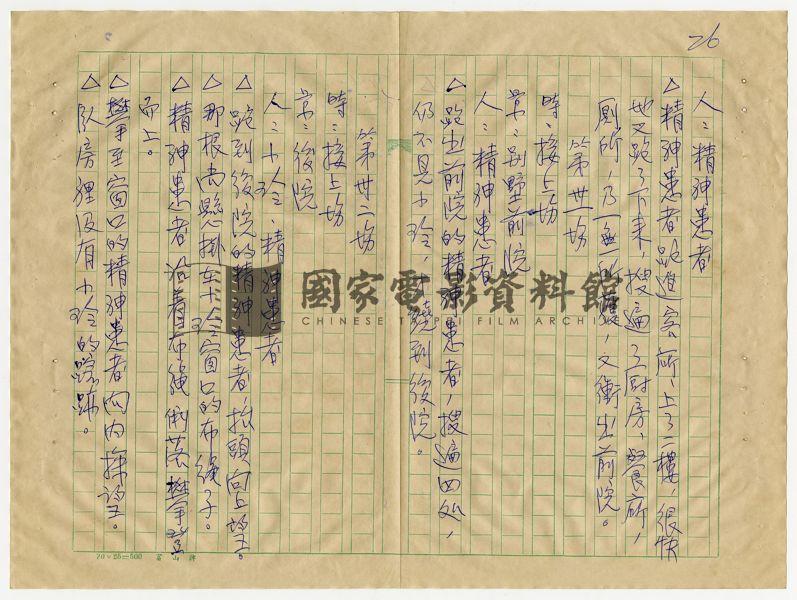 26
人：精神患者
△精神患者跑進客所，上了二樓，很快
地又跑了下来，搜遍了厨房、餐所，
厠所，乃一無所獲，又衝出前院。
第卅一場
時：接上场
景：別墅前院
人：精神患者
△跑出前院的精神患者，搜遍四处，
仍不見小玲，才繞到後院。
第卅二場
時：接上场
景：後院
人：小玲、精神患者
△跑到後院的精神患者，抬頭向上望。
△那根高懸掛在小玲窗口的布繩子。
△精神患者沿着布繩攀
而上。
△攀至窗口的精神患者向内探望。
△臥房裡没有小玲的踪跡。
國家電影資料館
CHINESE TAIPEI FILM ARCHIVE
20×25=500